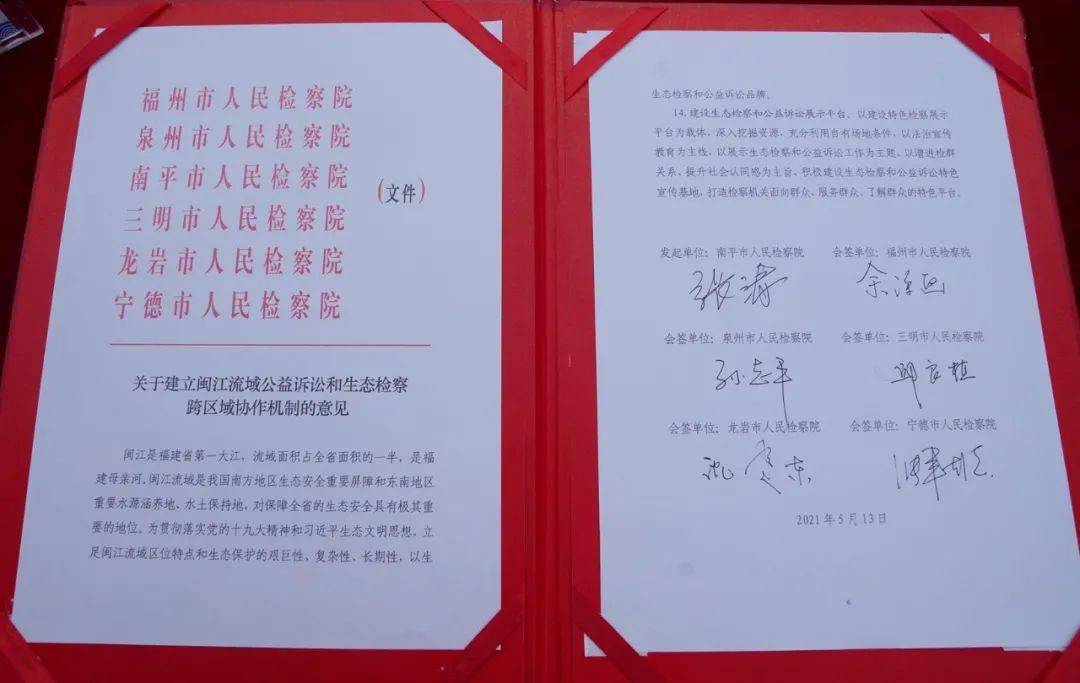 福州市人民检察院
泉州市人民检察院
南平市人民检察院
三明市人民检察院
龙岩市人民检察院
宁德市人民检察院
(文件)
关于建立闽江流域公益诉讼和生态检察
跨区域协作机制的意见
闽江是福建省第一大江，流域面积占全省面积的一半，是福
建母亲河。闽江流域是我国南方地区生态安全重要屏障和东南地区
重要水源涵养地、水土保持地，对保障全省的生态安全具有极其重
要的地位。为贯彻落实党的十九大精神和习近平生态文明思想，立
足闽江流域区位特点和生态保护的艰巨性、复杂性、长期性，以生
生态检察和公益诉讼品牌。
14.建设生态检察和公益诉讼展示平台。以建设特色检察展示
平台为载体，深入挖掘资源，充分利用自有场地条件，以法治宣传
教育为主线，以展示生态检察和公益诉讼工作为主题，以增进检群
关系、提升社会认同感为主旨，积极建设生态检察和公益诉讼特色
宣传基地，打造检察机关面向群众、服务群众、了解群众的特色平台。
发起单位：南平市人民检察院 会签单位：福州市人民检察院
会签单位：泉州市人民检察院 会签单位：三明市人民检察院
孙志平
会签单位：龙岩市人民检察院 会签单位：宁德市人民检察院
2021年5月13日